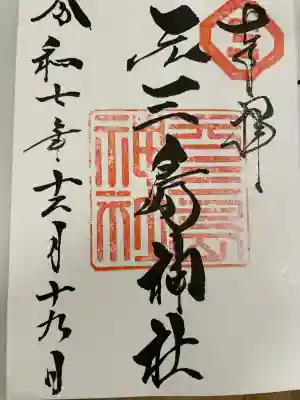 奉拝
元三島神社
令和七年十二月十九日
元三島
神社